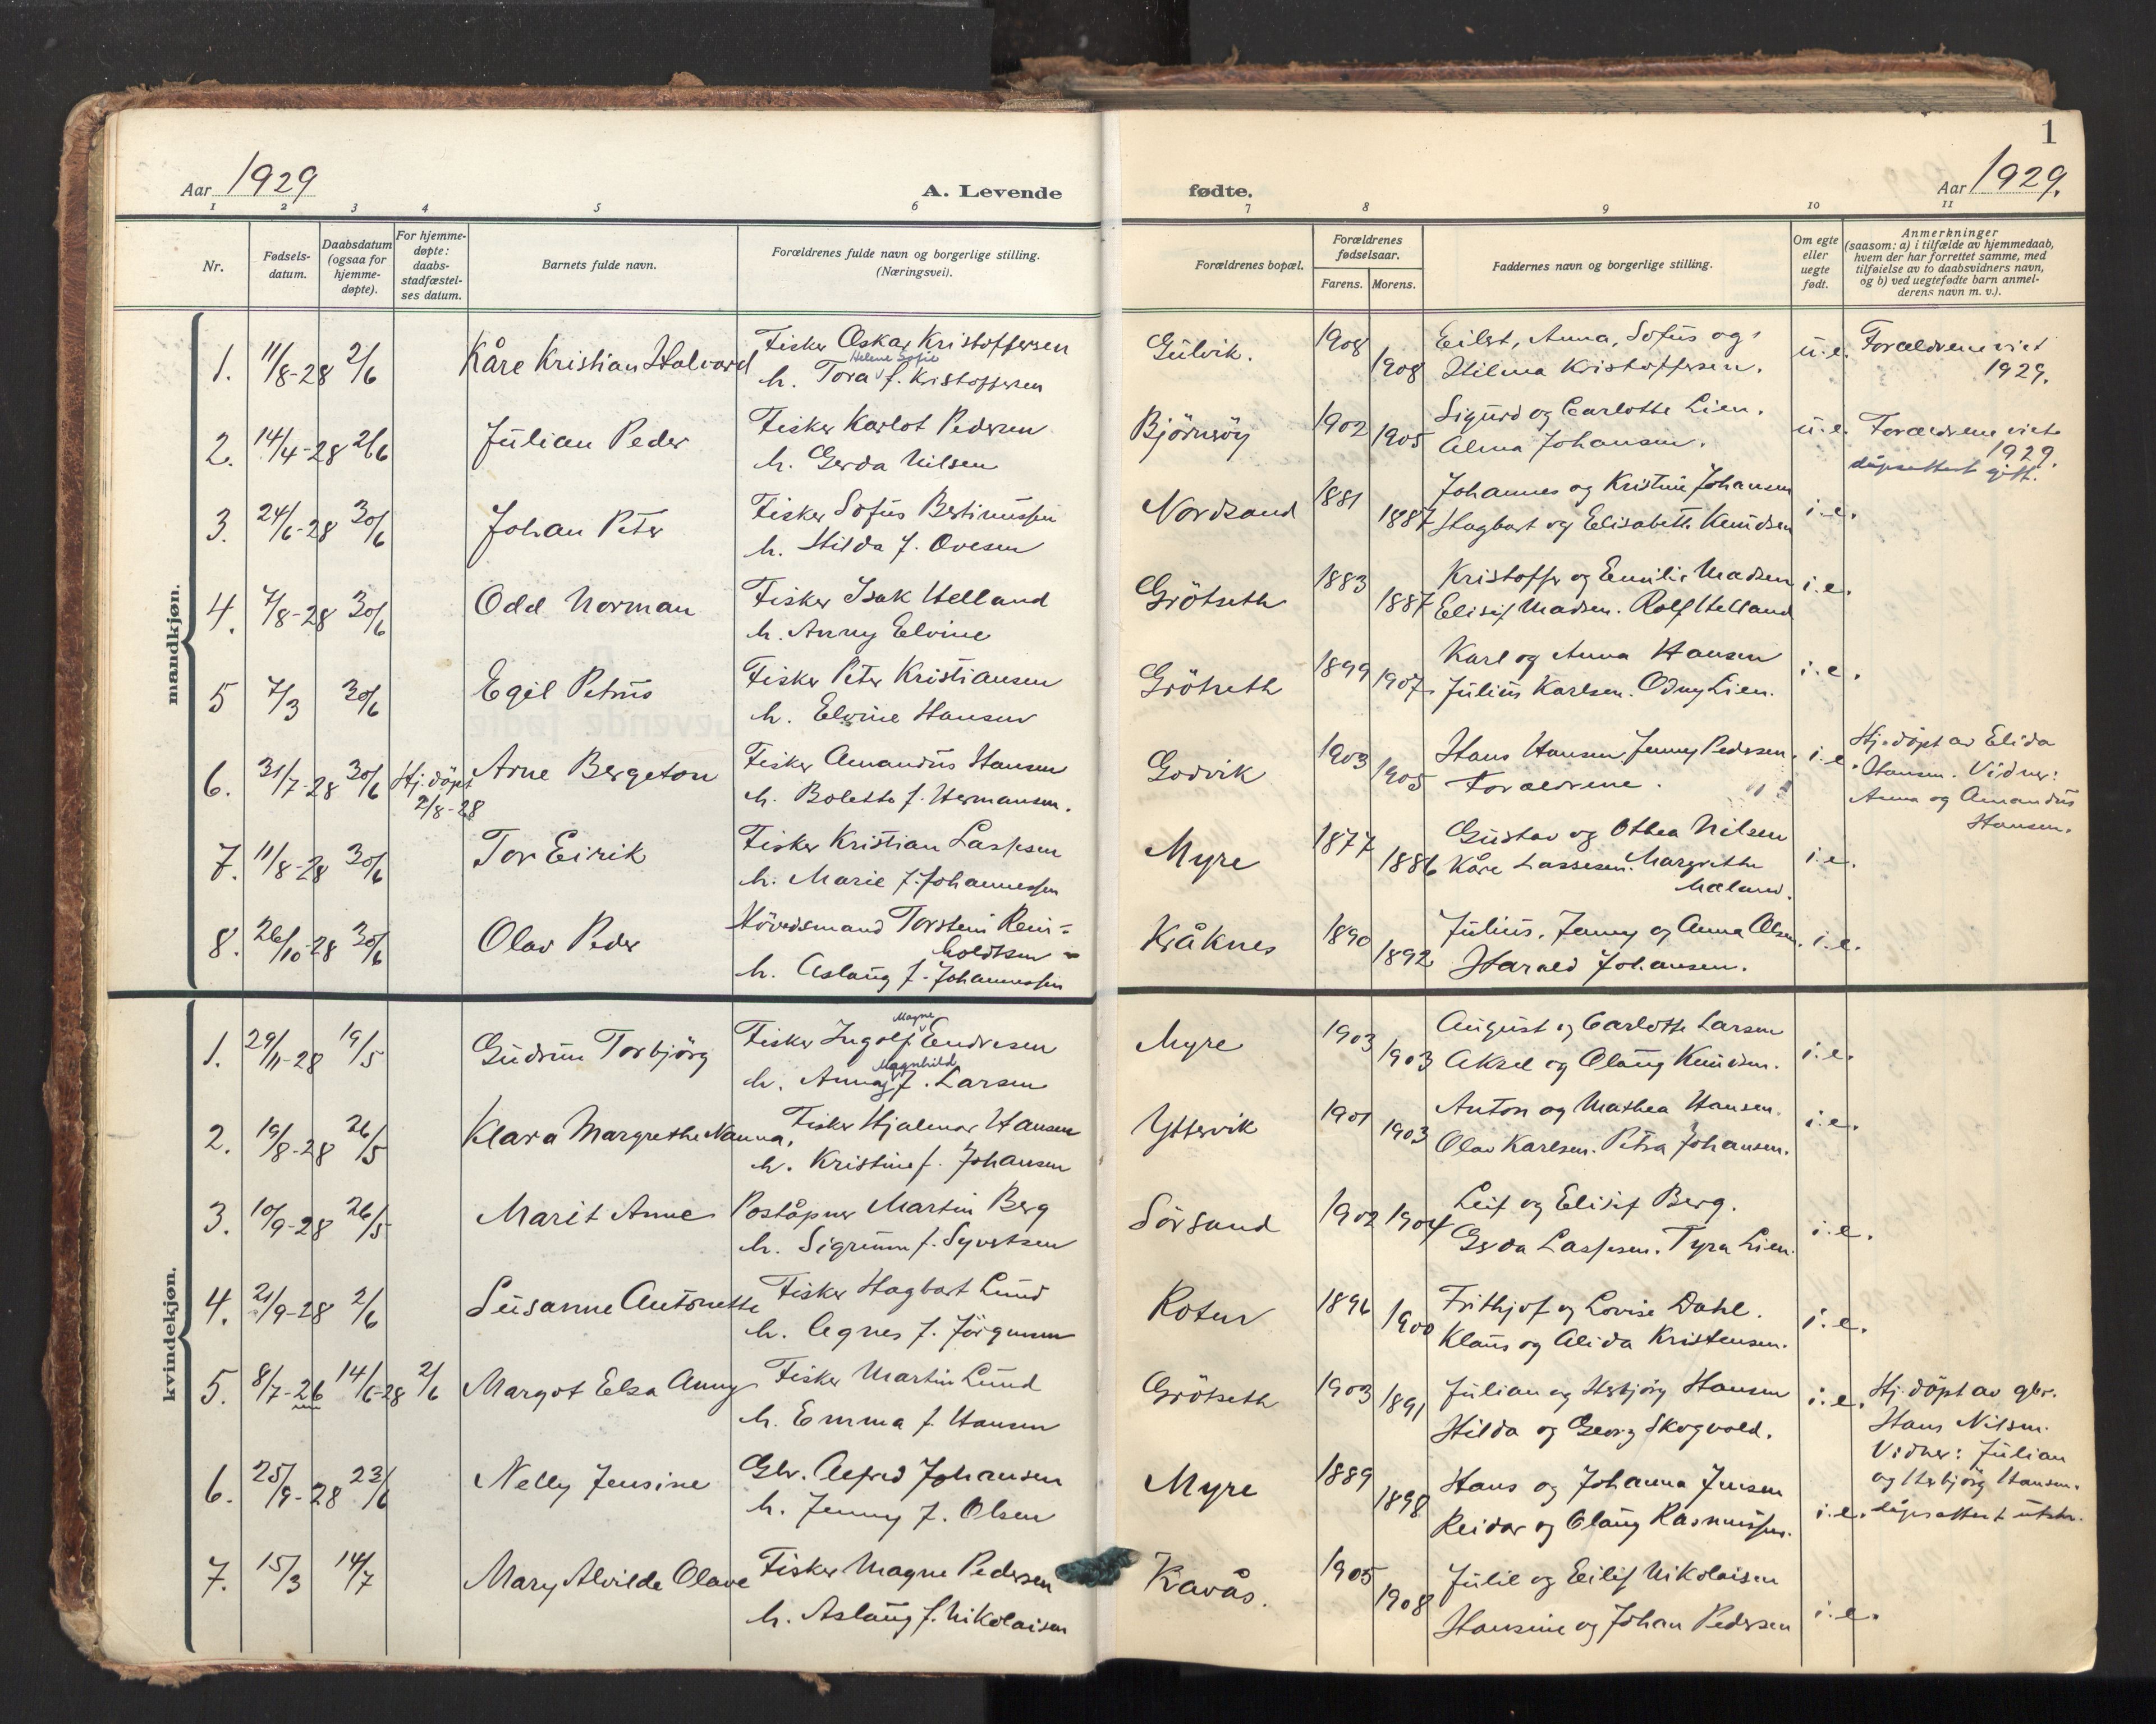 1
Aar 1929
A. Levende
fødte.
Aar 1929.
1 2 3 4 5 6 7 8 9 10 11
Nr.
Fødsels-
datum.
Daabsdatum
(ogsaa for
hjemme-
døpte).
For hjemme-
døpte:
daabs-
stadfæstel-
ses datum.
Barnets fulde navn.
Forældrenes fulde navn og borgerlige stilling.
(Næringsvei).
Forældrenes bopæl.
Forældrenes
fødselsaar.
Farens. Morens.
Faddernes navn og borgerlige stilling.
Om egte
eller
uegte
født.
Anmerkninger
(saasom: a) i tilfælde av hjemmedaab,
hvem der har forrettet samme, med
tilføielse av to daabsvidners navn,
og b) ved uegtefødte barn anmel-
derens navn m. v.).
mandkjøn.
1. 11/8-28 2/6 Kåre Kristian Halvard
Fisker Oskar Kristoffersen
Helene Sofie
h. Tora f. Kristoffersen
Gulvik. 1908 1908
Eilert, Anna, Sofus og
Hilma Kristoffersen.
u.e. Forældrene viet
1929.
2. 14/4-28 2/6 Julian Peder
Fisker Karlot Pedersen
h. Gerda Nilsen
Björnsöy 1902 1905
Sigurd og Carlotte Lien.
Alma Johansen.
u.e. Forældrene viet
1929.
dåpsattest gitt.
3. 24/6-28 30/6 Johan Peter
Fisker Sofus Bertinussen
h. Hilda f. Ovesen
Nordsand 1881 1887
Johannes og Kristine Johansen
Hagbart og Elisabeth Knudsen
i.e.
4. 7/8-28 30/6 Odd Norman
Fisker Isak Helland
h. Anny Elvine
Grötseth 1883 1887
Kristoffer og Emilie Madsen
Elisif Madsen. Rolf Helland
i.e.
5 7/3 30/6 Egil Petrus
Fisker Peter Kristiansen
h. Elvine Hansen
Grötseth 1899 1907.
Karl og Anna Hansen
Julius Karlsen. Odny Lien.
i.e.
6. 31/7-28 30/6 Hj. döpt
2/8-28
Arne Bergeton
Fisker Amandus Hansen
h. Bolette f. Hermansen.
Godvik 1903 1905
Hans Hansen, Jenny Pedersen.
Forældrene.
i.e. Hj. döpt av Elida
Hansen. Vidner:
Anna og Amandus
Hansen.
7. 11/8-28 30/6 Tor Eirik
Fisker Kristian Lassesen
h. Marie f. Johannessen
Myre 1877 1886
Gustav og Othea Nilsen
Kåre Lassesen. Margrethe
Mæland.
i.e.
8. 26/10-28 30/6 Olav Peder
Hövedsmand Torstein Rein-
holdtsen
h. Aslaug f. Johannessen
Kråknes 1890 1892
Julius, Jenny og Anna Olsen.
Harald Johansen.
i.e.
kvindekjøn.
1. 29/11-28 19/5 Gudrun Torbjörg
Magne
Fisker Ingolf Endresen
Magnhild
h. Anna f. Larsen
Myre 1903 1903
August og Carlotte Larsen
Aksel og Olaug Knudsen.
i.e.
2. 19/8-28 26/5 Klara Margrethe Nanna.
Fisker Hjalmar Hansen
h. Kristine f. Johansen
Yttervik 1901 1903
Anton og Mathea Hansen.
Olav Karlsen. Petra Johansen.
i.e.
3. 10/9-28 26/5 Marit Anne
Poståpner Martin Berg
h. Sigrunn f. Syvertsen
Sörsand 1902 1904
Leif og Elisif Berg.
Gerda Lassesen. Tyra Lien.
i.e.
4. 21/9-28 2/6 Susanne Antonette
Fisker Hagbart Lund
h. Agnes f. Jörgensen
Roten 1896 1900
Frithjof og Lovise Dahl.
Klaus og Alida Kristensen.
i.e.
5. 8/7-26 14/6-28 2/6 Margot Elsa Anny
Fisker Martin Lund
h. Emma f. Hansen
Grötseth 1903 1891
Julian og Herbjörg Hansen
Hilda og Georg Skogvold.
i.e. Hj. döpt av gbr.
Hans Nilsen.
Vidner: Julian
og Herbjörg Hansen.
6. 25/9-28 23/6 Nelly Jensine
Gbr. Alfred Johansen
h. Jenny f. Olsen
Myre 1889 1898
Hans og Johanna Jensen
Reidar og Olaug Rasmussen.
i.e. dåpsattest utstr.
7. 15/3 14/7 Mary Alvilde Olave
Fisker Magne Pedersen
h. Aslaug f. Nikolaisen
Kavås. 1905 1908
Julie og Eilif Nikolaisen
Hansine og Johan Pedersen
i.e.